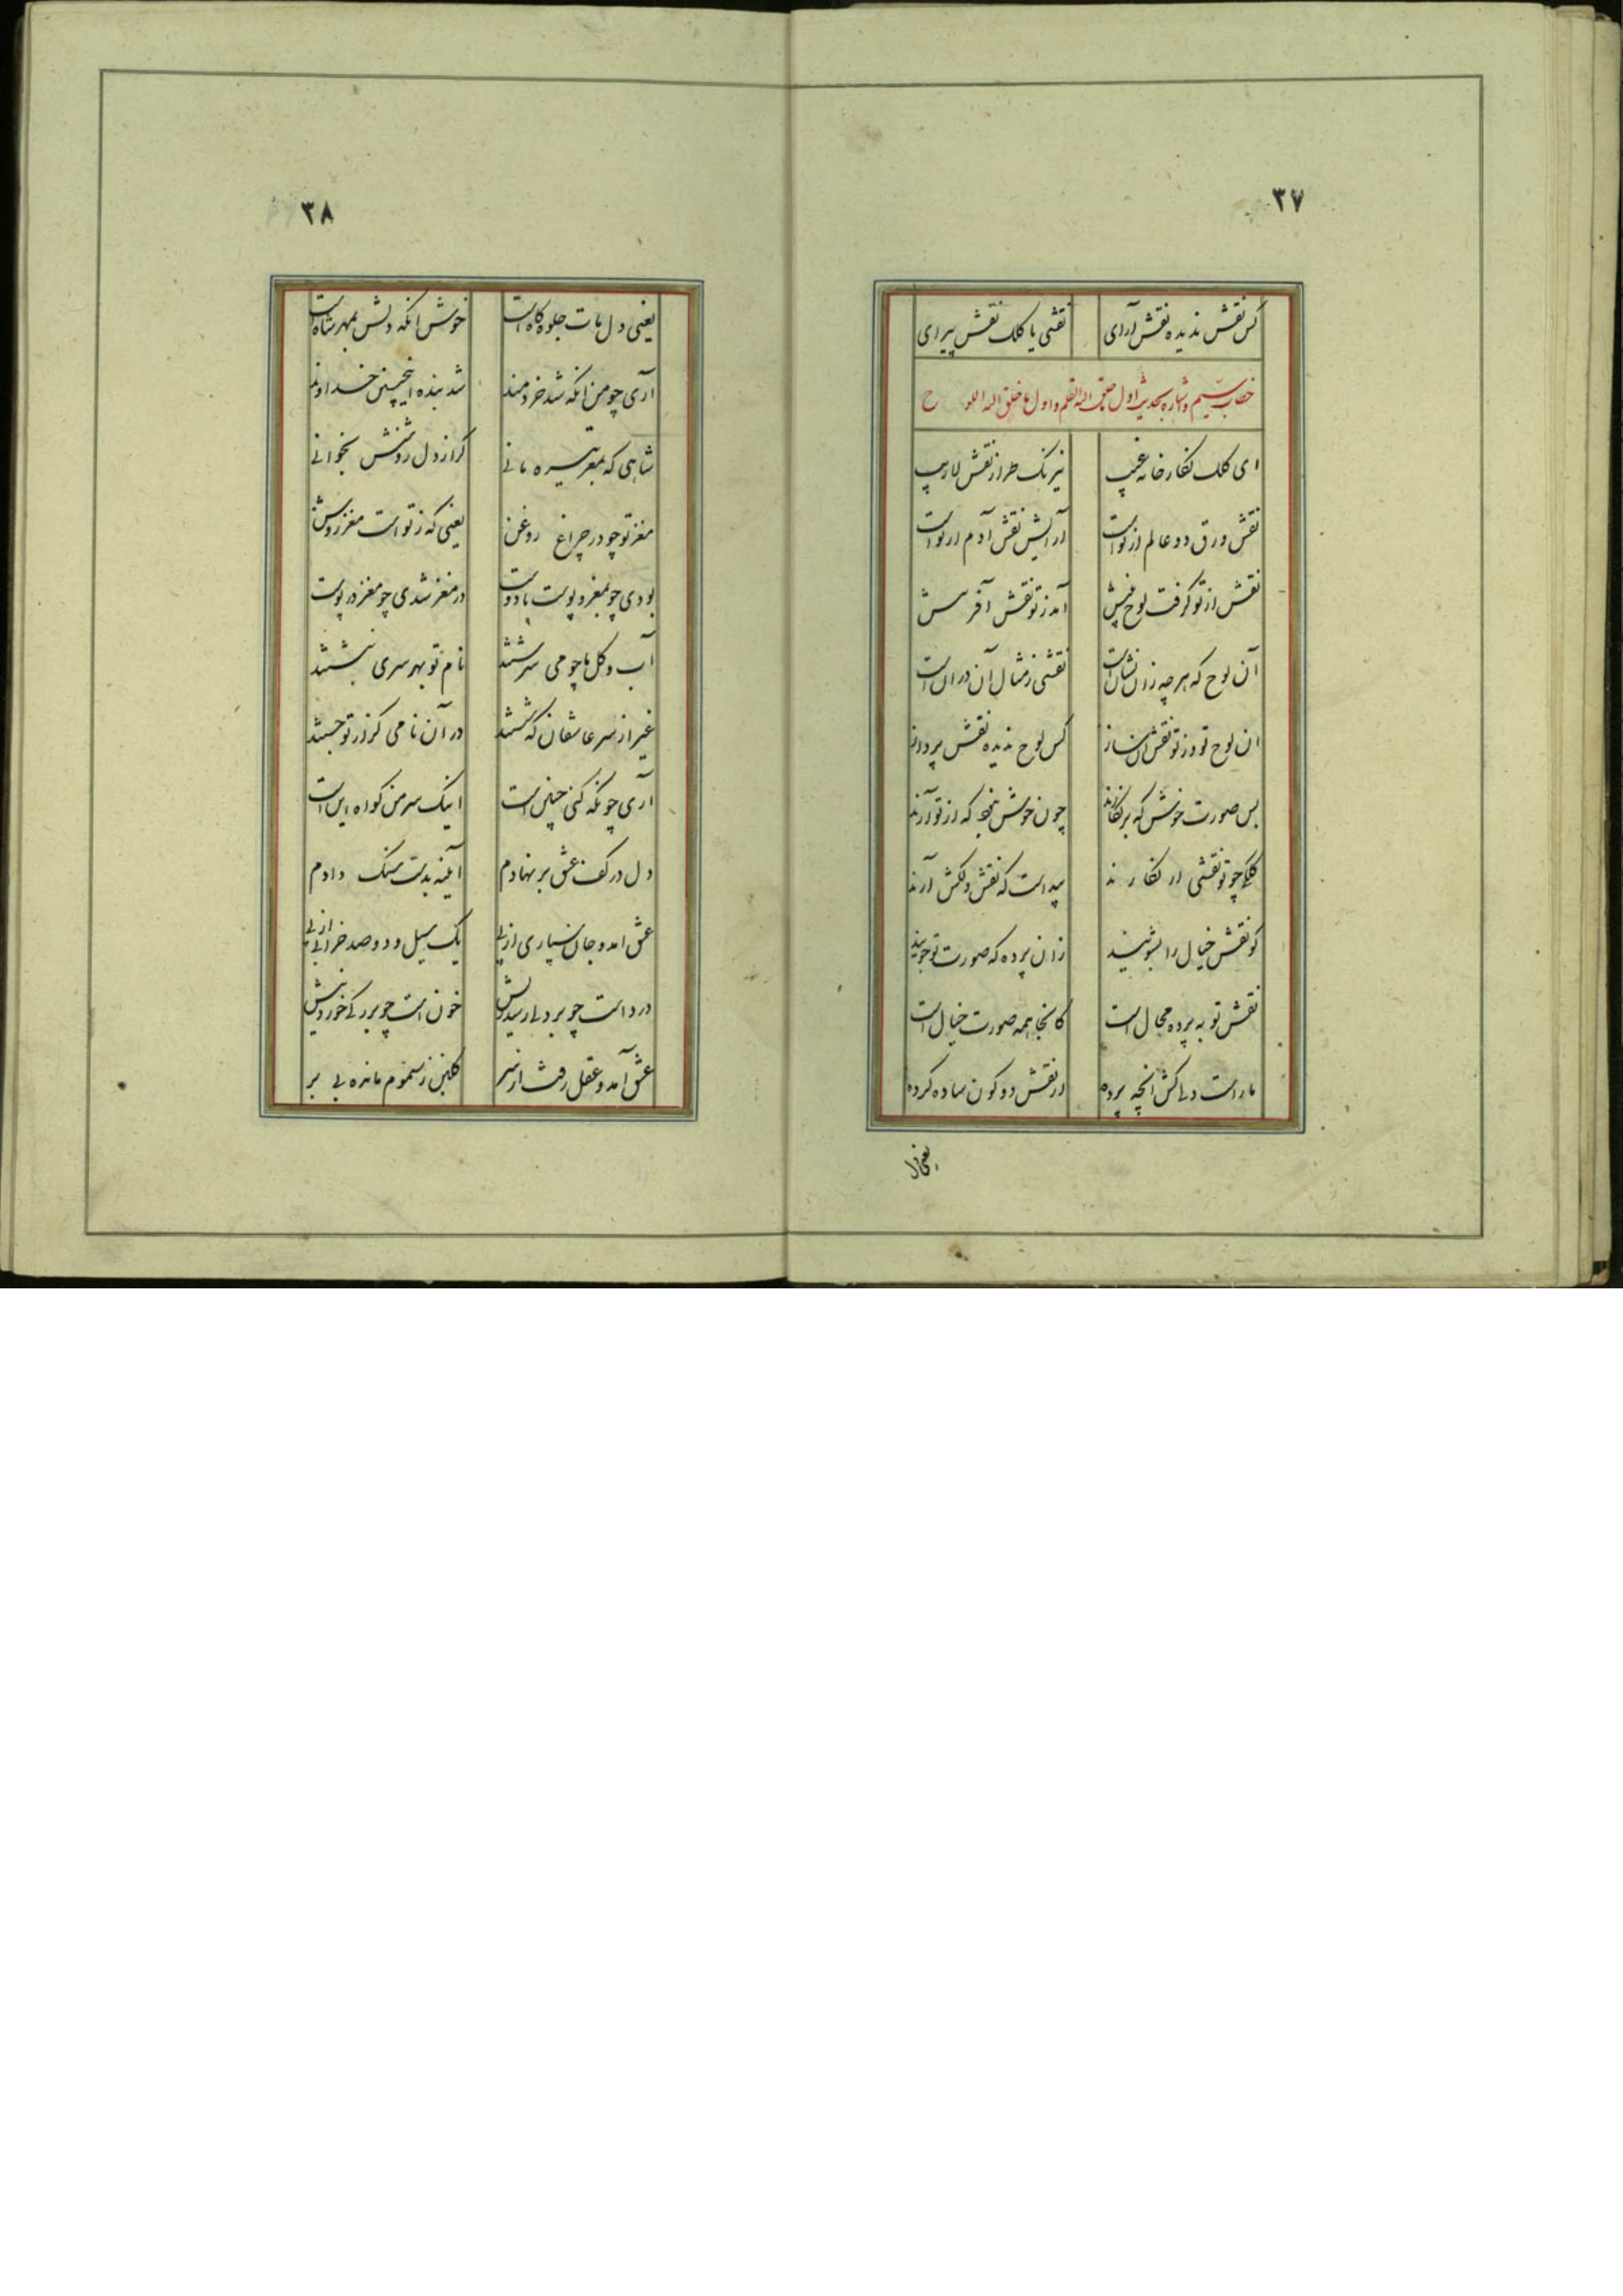 ۳۷
کس نقش ندیده نقش آرای نقشی یا کلک نقش پیرای
خطاب سیم و اشاره بحدیث اول ما خلق الله القلم و اول ما خلق الله اللوح
ای کلک نگارخانه غیب نیرنک طراز نقش لاریب
نقش ورق دو عالم از تو است آرایش نقش آدم از تو است
نقش از تو گرفت لوح بینش آمد ز تو نقش آفرینش
آن لوح که هر چه زان نشان است نقشی ز مثال آن در ان است
ان لوح تو وز تو نقش ان ساز کس لوح ندیده نقش پرداز
بس صورت خوش که بر نگارند چون خوش نبود که از تو آرند
کلکی چو تو نقشی ار نگارند پیداست که نقش دلکش آرند
کو نقش خیال را بشویند زان پرده که صورت تو جویند
نقش تو به پرده محال است کانجا همه صورت خیال است
ما راست دلی کش انچه پرده از نقش دو کون ساده کرده
یعنی دل
۳۸
یعنی دل مات جلوه کاه است خوش انکه دلش بمهر شاه است
آری چو من انکه شد خردمند شد بنده اینچنین خداوند
شاهی که بمغز تیره مانی کر از دل روشنش بخوانی
مغز تو چو در چراغ روغن یعنی که ز تو است مغز روشن
بودی چو بمغز و پوست با دوست در مغز شدی چو مغز در پوست
آب و کل ما چو می سرشتند نام تو بهر سری نبشتند
غیر از سر عاشقان که شستند در آن نامی کز از تو جستند
اری چو نکه کنی چنین است اینک سر من کواه این است
دل در کف عشق بر نهادم آینه بدست سنک دادم
عشق امد و جان سپاری از پی یک سیل و دو صد خرابی از پی
درد است چو بر دلی رسیدش خون است چو بر رکی خوردیش
عشق آمد و عقل رفت از سر کلبن ز سموم مانده بی بر